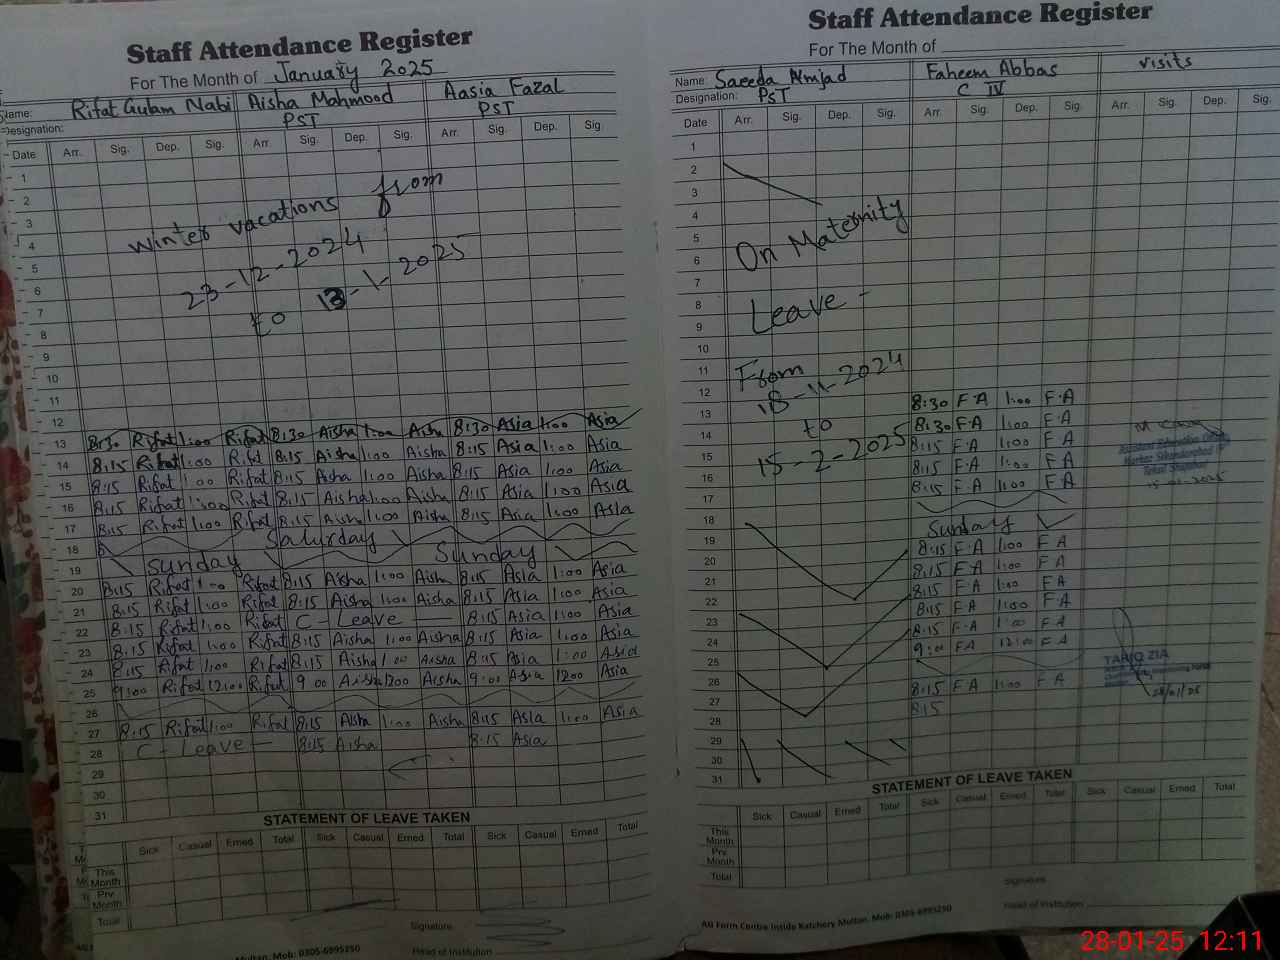 Staff Attendance Register
For The Month of January 2025
Name: Rifat Gulam Nabi Aisha Mahmood Aasia Fazal
Designation: PST PST
Date Arr. Sig. Dep. Sig. Arr. Sig. Dep. Sig. Arr. Sig. Dep. Sig.
1
2
3
4
5
6
7
8
9
10
11
12
winter vacations from
23-12-2024
to 13-1-2025
13 8:30 Rifat 1:00 Rifat 8:30 Aisha 1:00 Aisha 8:30 Asia 1:00 Asia
14 8:15 Rifat 1:00 Rifat 8:15 Aisha 1:00 Aisha 8:15 Asia 1:00 Asia
15 8:15 Rifat 1:00 Rifat 8:15 Aisha 1:00 Aisha 8:15 Asia 1:00 Asia
16 8:15 Rifat 1:00 Rifat 8:15 Aisha 1:00 Aisha 8:15 Asia 1:00 Asia
17 8:15 Rifat 1:00 Rifat 8:15 Aisha 1:00 Aisha 8:15 Asia 1:00 Asia
18 Saturday
19 Sunday Sunday
20 8:15 Rifat 1:00 Rifat 8:15 Aisha 1:00 Aisha 8:15 Asia 1:00 Asia
21 8:15 Rifat 1:00 Rifat 8:15 Aisha 1:00 Aisha 8:15 Asia 1:00 Asia
22 8:15 Rifat 1:00 Rifat C-Leave 8:15 Asia 1:00 Asia
23 8:15 Rifat 1:00 Rifat 8:15 Aisha 1:00 Aisha 8:15 Asia 1:00 Asia
24 8:15 Rifat 1:00 Rifat 8:15 Aisha 1:00 Aisha 8:15 Asia 1:00 Asia
25 9:00 Rifat 12:00 Rifat 9 00 Aisha 1200 Aisha 9:00 Asia 1200 Asia
26
27 8:15 Rifat 1:00 Rifat 8:15 Aisha 1:00 Aisha 8:15 Asia 1:00 Asia
28 C-Leave 8:15 Aisha 8:15 Asia
29
30
31
STATEMENT OF LEAVE TAKEN
Sick Casual Erned Total Sick Casual Erned Total Sick Casual Erned Total
This Month
Prv. Month
Total
Signature
Head of Institution
Multan. Mob: 0305-6995250
Staff Attendance Register
For The Month of
Name: Saeeda Amjad Faheem Abbas visits
Designation: PST C IV
Date Arr. Sig. Dep. Sig. Arr. Sig. Dep. Sig. Arr. Sig. Dep. Sig.
1
2
3
4
5
6
7
8
9
10
11
12
On Maternity
Leave -
From
18-11-2024
to
15-2-2025
8:30 F A 1:00 F.A
13 8:30 F.A 1:00 F.A
14 8:15 F.A 1:00 F.A
15 8:15 F.A 1:00 F A
16 8:15 F A 1:00 F A
17
18 Sunday
19 8:15 F.A 1:00 F A
20 8:15 F.A 1:00 F A
21 8:15 F.A 1:00 F A
22 8:15 F A 1:00 F A
23 8:15 F.A 1:00 F A
24 9:00 FA 12:00 F A
25
26 8:15 F A 1:00 F A
27 8:15
28
29
30
31
15-01-2025
TARIQ ZIA
28/01/25
STATEMENT OF LEAVE TAKEN
Sick Casual Erned Total Sick Casual Erned Total Sick Casual Erned Total
This Month
Prv. Month
Total
Signature
Head of Institution
Ali Form Centre Inside Katchery Multan. Mob: 0305-6995250
28-01-25 12:11